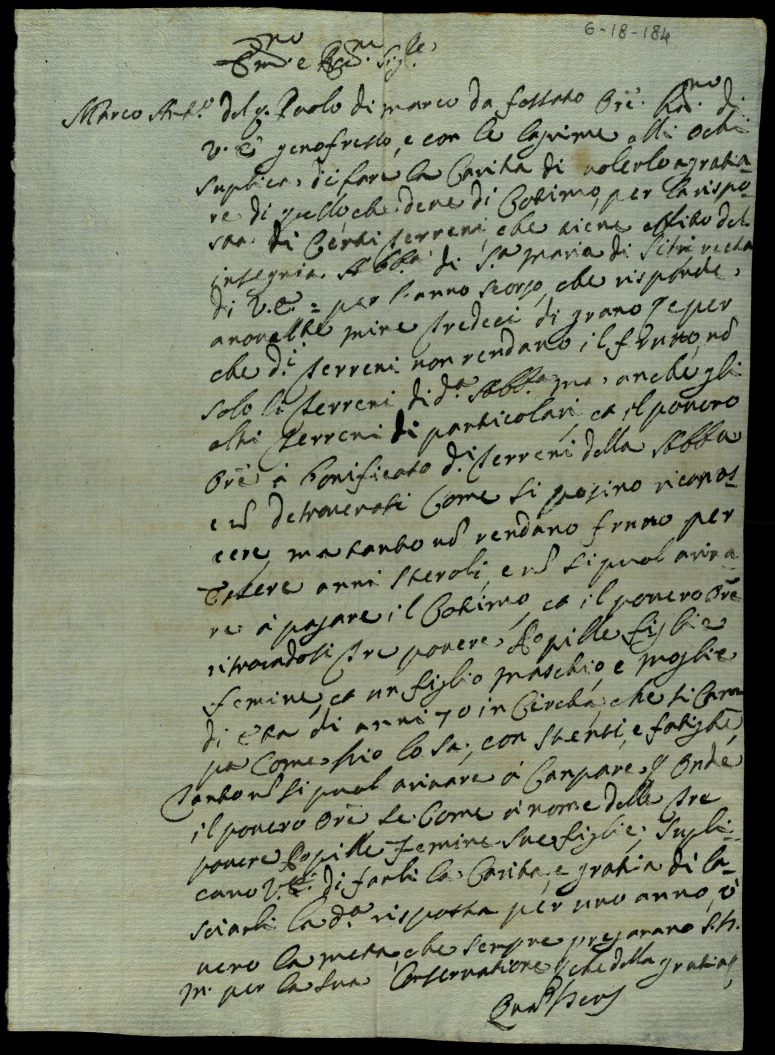 6-18-184
Em.mo e R.mo Sig.re
Marco Ant.o del q. Paolo di marco da fossato Ore. hu.mo di
V. E. genofresso, e con le lagrime alli ochi
suplica, di fare la Carita di volerlo agratia-
re di quello, che deve di Cotimo, per la rispo-
sta di Certi terreni, che tiene del
insegnia Abb.a di S.ta maria di Sitri recta
di V. E. = per l'anno scorso, che risponde,
mine tredeci di grano, q.e per
che d.i terreni non rendano il fruto, nõ
solo li terreni di d.a Abb.a ma, anche gli
altri terreni di particolari, ca il povero
Ore à bonificato d.i terreni della Abba
e nõ Come si posino ricanos-
cere, ma tanto nõ rendano fruto per
esere anni steroli, e nõ si puol ariva-
re à pagare il Cotimo, ca il povero Ore
ritrovandosi tre povere, Popille figlie
femine, ca un figlio maschio, e moglie
di Eta di anni 70 in Circha, che si Cam-
pa Come Iddio lo sa, con stenti, e fatighe
tanto nõ si puol arivare à Campare, q. Onde
il povero Ore se Come à nome delle tre
povere Popille Femine sue figlie, supli-
cano V. E. di farli la Carita, e gratia di la-
sciarli la d.a risposta per uno anno, ò
vero la meta, che sempre pregarano S. D.
M. per la sua Conservatione q. che della gratia
Quam Deus